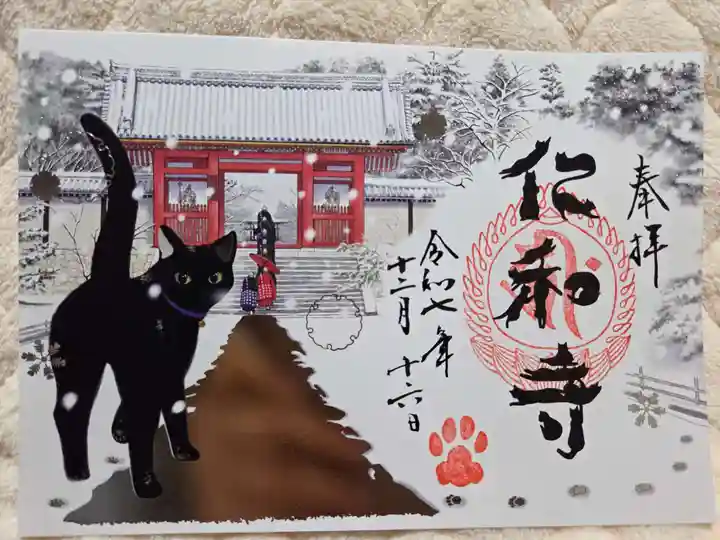 奉拝
仁和寺
令和七年
十二月十六日